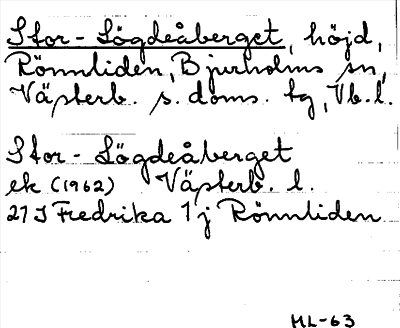 Stor-Lögdeåberget, höjd,
Rönnliden, Bjurholms sn,
Västerb. s. doms. tg, Vb. l.
Stor-Lögdeåberget
ek (1962) Västerb. l.
21 J Fredrika 1 j Rönnliden
ML-63